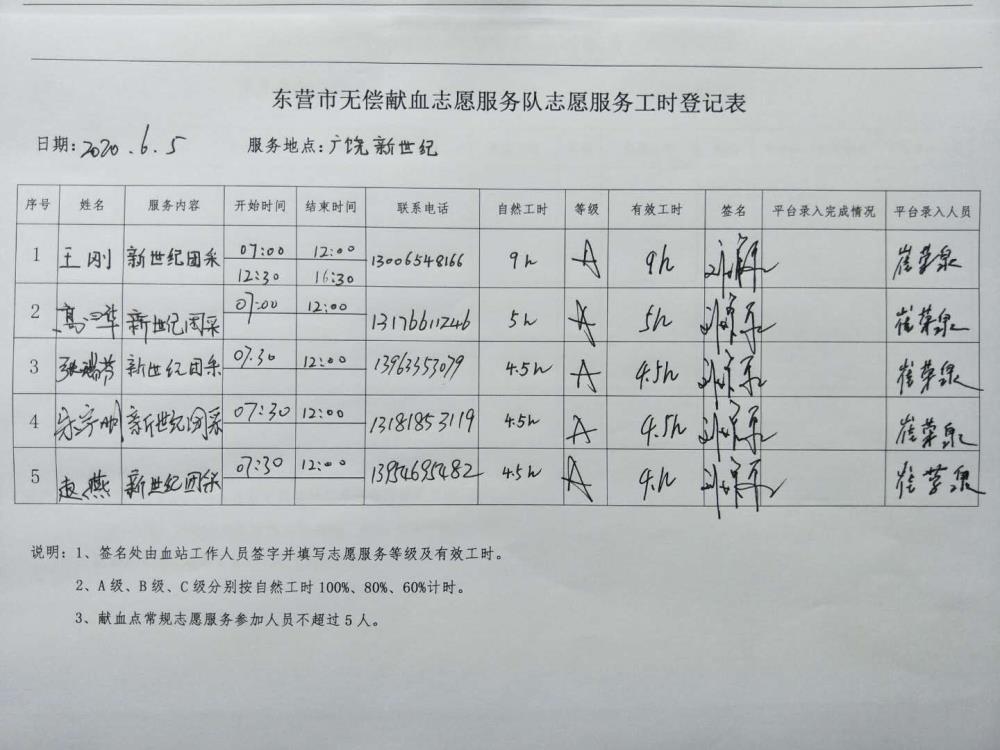 东营市无偿献血志愿服务队志愿服务工时登记表
日期:2020.6.5 服务地点:广饶新世纪
序号 姓名 服务内容 开始时间 结束时间 联系电话 自然工时 等级 有效工时 签名 平台录入完成情况 平台录入人员
1 王刚 新世纪团采 07:00 12:00 13006548166 9h A 9h 崔荣泉
12:30 16:30
2 新世纪团采 07:00 12:00 13176611246 5h A 5h 崔荣泉
3 张瑞芬 新世纪团采 07:30 12:00 13963553079 4.5h A 4.5h 崔荣泉
4 宋宇鹏 新世纪团采 07:30 12:00 13181853119 4.5h A 4.5h 崔荣泉
5 赵燕 新世纪团采 07:30 12:00 13954695482 4.5h A 4.h 崔荣泉
说明:1、签名处由血站工作人员签字并填写志愿服务等级及有效工时。
2、A级、B级、C级分别按自然工时100%、80%、60%计时。
3、献血点常规志愿服务参加人员不超过5人。